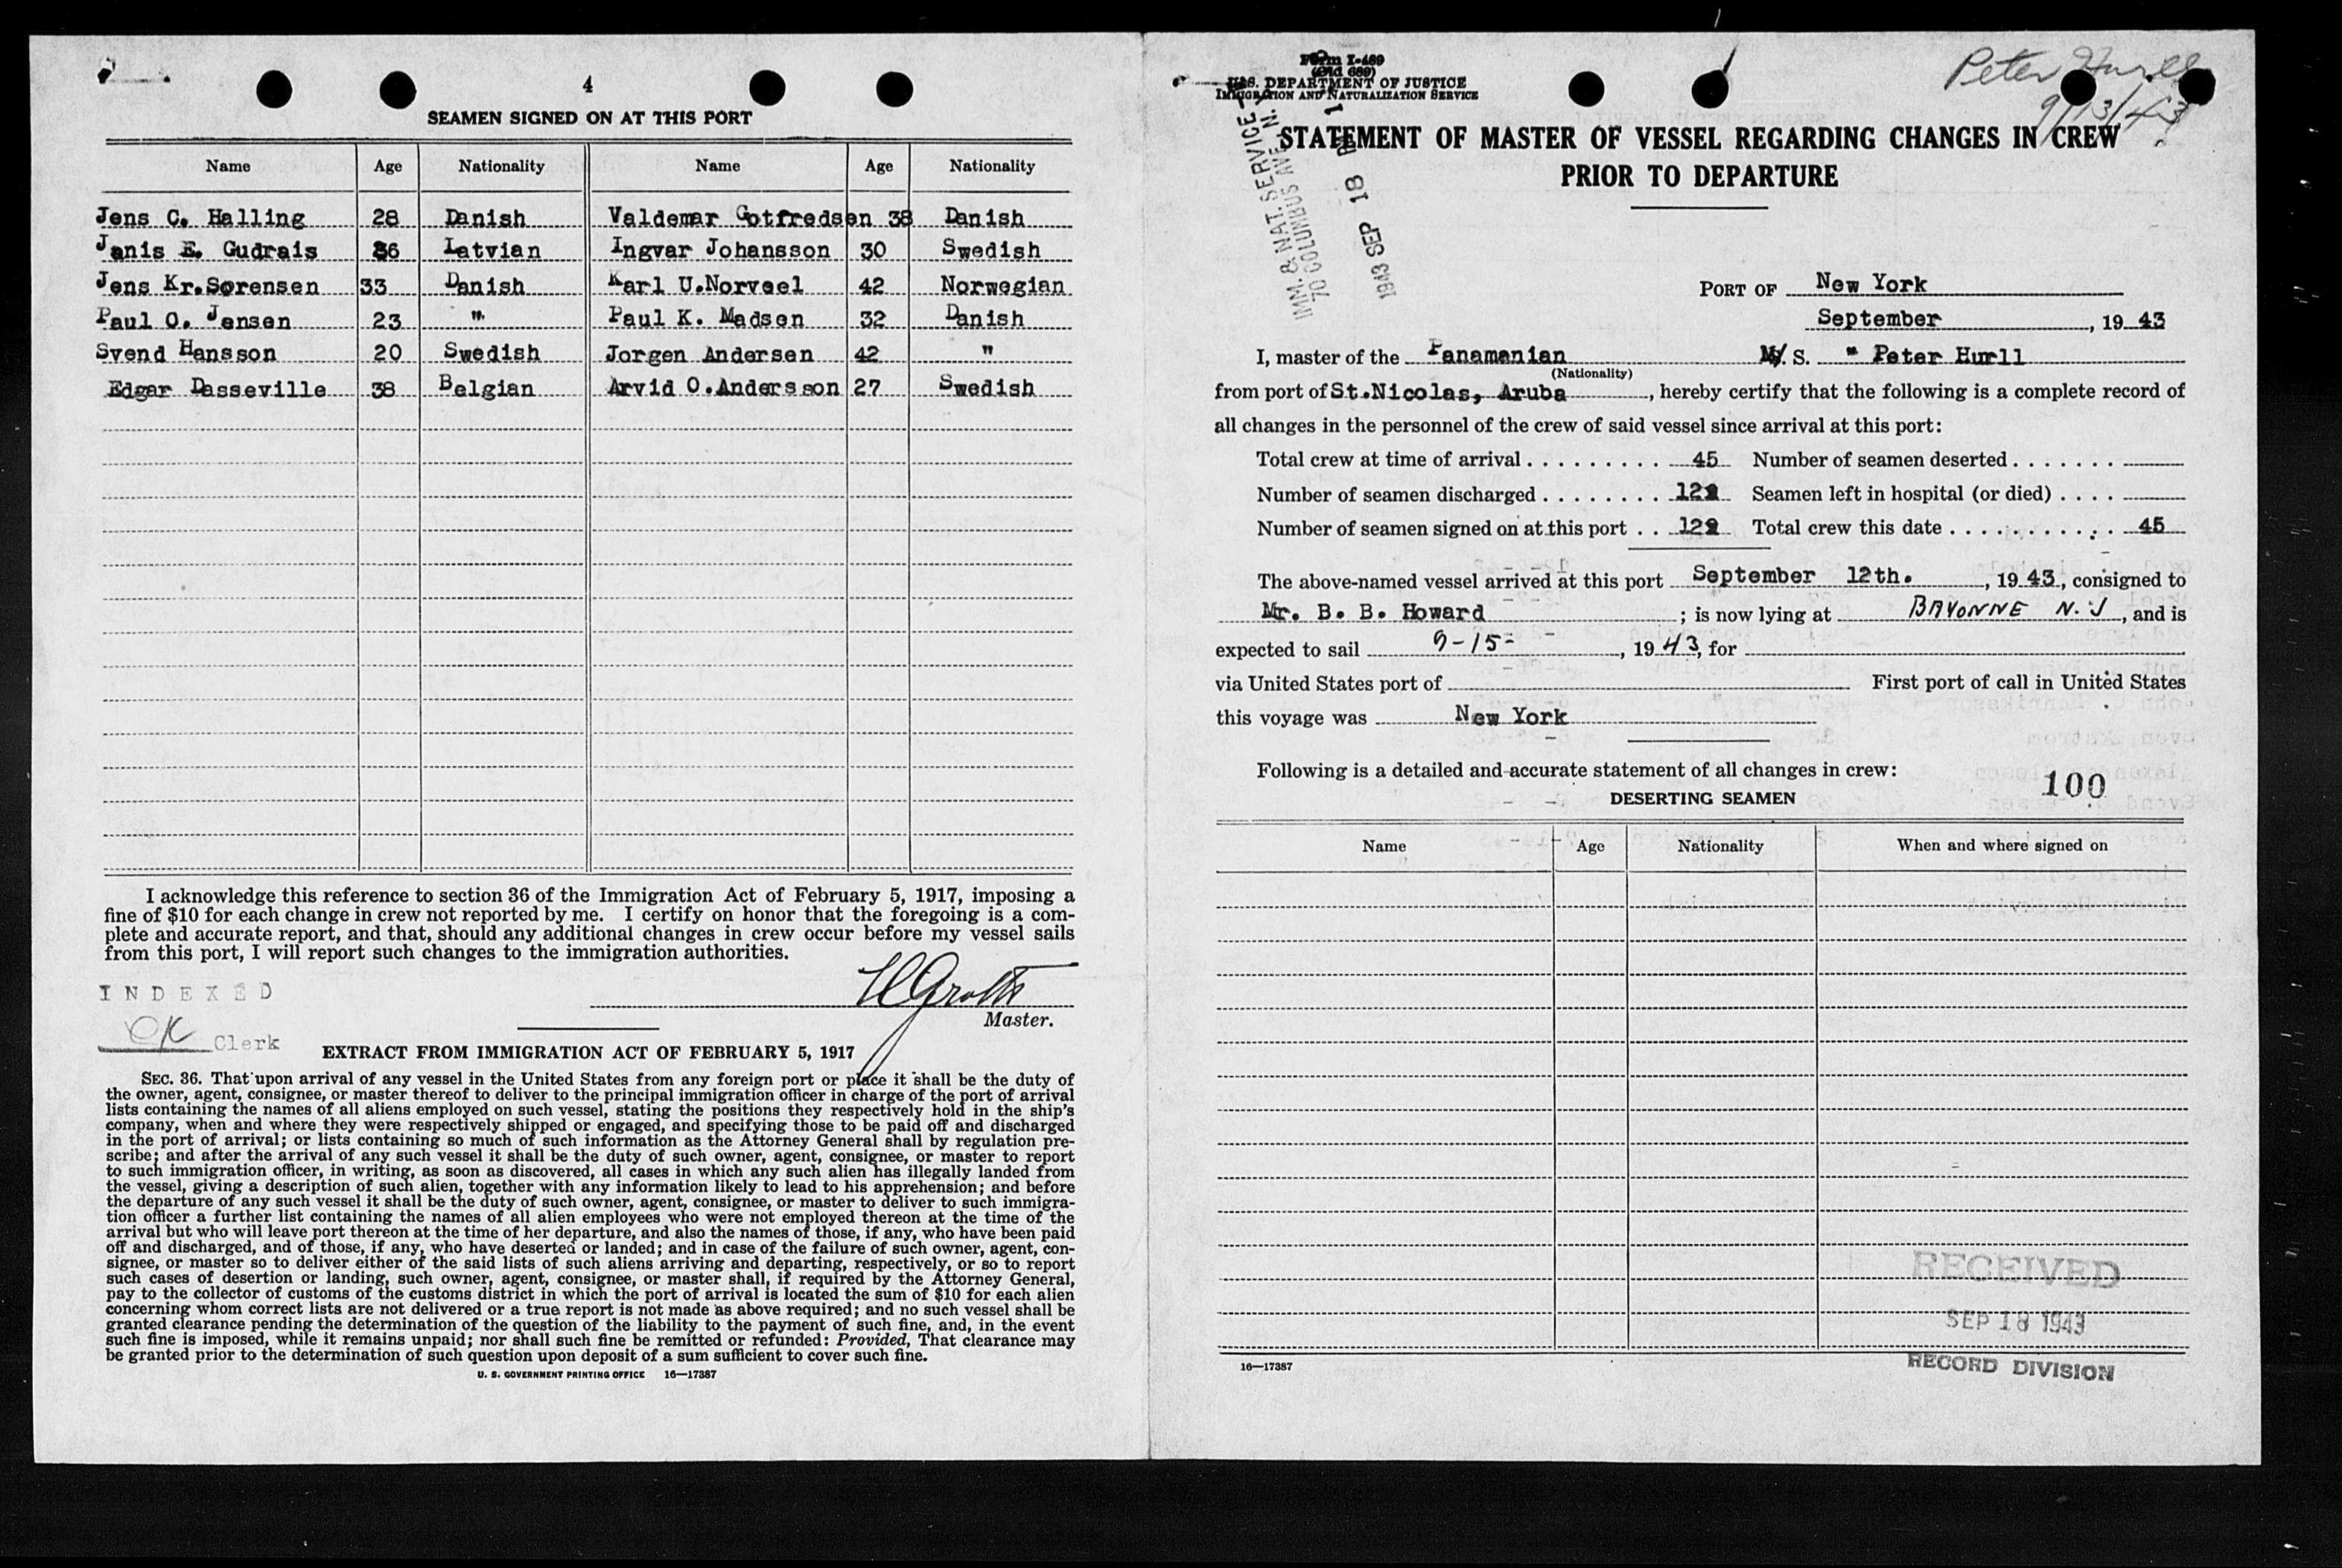 4
SEAMEN SIGNED ON AT THIS PORT
Name Age Nationality Name Age Nationality
Jens C. Halling 28 Danish Valdemar Gotfredsen 38 Danish
Janis E. Gudrais 36 Latvian Ingvar Johansson 30 Swedish
Jens Kr.Sørensen 33 Danish Karl U.Norveel 42 Norwegian
Paul O. Jensen 23 " Paul K. Madsen 32 Danish
Svend Hansson 20 Swedish Jorgen Andersen 42 "
Edgar Dasseville 38 Belgian Arvid O.Andersson 27 Swedish
I acknowledge this reference to section 36 of the Immigration Act of February 5, 1917, imposing a
fine of $10 for each change in crew not reported by me. I certify on honor that the foregoing is a com-
plete and accurate report, and that, should any additional changes in crew occur before my vessel sails
from this port, I will report such changes to the immigration authorities.
INDEXED
Master.
OK Clerk
EXTRACT FROM IMMIGRATION ACT OF FEBRUARY 5, 1917
SEC. 36. That upon arrival of any vessel in the United States from any foreign port or place it shall be the duty of
the owner, agent, consignee, or master thereof to deliver to the principal immigration officer in charge of the port of arrival
lists containing the names of all aliens employed on such vessel, stating the positions they respectively hold in the ship's
company, when and where they were respectively shipped or engaged, and specifying those to be paid off and discharged
in the port of arrival; or lists containing so much of such information as the Attorney General shall by regulation pre-
scribe; and after the arrival of any such vessel it shall be the duty of such owner, agent, consignee, or master to report
to such immigration officer, in writing, as soon as discovered, all cases in which any such alien has illegally landed from
the vessel, giving a description of such alien, together with any information likely to lead to his apprehension; and before
the departure of any such vessel it shall be the duty of such owner, agent, consignee, or master to deliver to such immigra-
tion officer a further list containing the names of all alien employees who were not employed thereon at the time of the
arrival but who will leave port thereon at the time of her departure, and also the names of those, if any, who have been paid
off and discharged, and of those, if any, who have deserted or landed; and in case of the failure of such owner, agent, con-
signee, or master so to deliver either of the said lists of such aliens arriving and departing, respectively, or so to report
such cases of desertion or landing, such owner, agent, consignee, or master shall, if required by the Attorney General,
pay to the collector of customs of the customs district in which the port of arrival is located the sum of $10 for each alien
concerning whom correct lists are not delivered or a true report is not made as above required; and no such vessel shall be
granted clearance pending the determination of the question of the liability to the payment of such fine, and, in the event
such fine is imposed, while it remains unpaid; nor shall such fine be remitted or refunded: Provided, That clearance may
be granted prior to the determination of such question upon deposit of a sum sufficient to cover such fine.
U. S. GOVERNMENT PRINTING OFFICE 16—17387
Form I-489
(Old 689)
U.S. DEPARTMENT OF JUSTICE
IMMIGRATION AND NATURALIZATION SERVICE
Peter Hurell
9/13/43
IMM. & NAT. SERVICE
70 COLUMBUS AVE. N.
1943 SEP 18
STATEMENT OF MASTER OF VESSEL REGARDING CHANGES IN CREW
PRIOR TO DEPARTURE
PORT OF New York
September , 19 43
I, master of the Panamanian M/ S. " Peter Hurll
(Nationality)
from port of St.Nicolas, Aruba , hereby certify that the following is a complete record of
all changes in the personnel of the crew of said vessel since arrival at this port:
Total crew at time of arrival . . . . . . . . . 45 Number of seamen deserted . . . . . . .
Number of seamen discharged . . . . . . . . 12 Seamen left in hospital (or died) . . . .
Number of seamen signed on at this port . . 12 Total crew this date . . . . . . . . . . . 45
The above-named vessel arrived at this port September 12th. , 19 43, consigned to
Mr. B. B. Howard ; is now lying at BAYONNE N.J , and is
expected to sail 9-15- , 19 43, for
via United States port of First port of call in United States
this voyage was New York
Following is a detailed and accurate statement of all changes in crew:
100
DESERTING SEAMEN
Name Age Nationality When and where signed on
RECEIVED
SEP 18 1943
RECORD DIVISION
16—17387